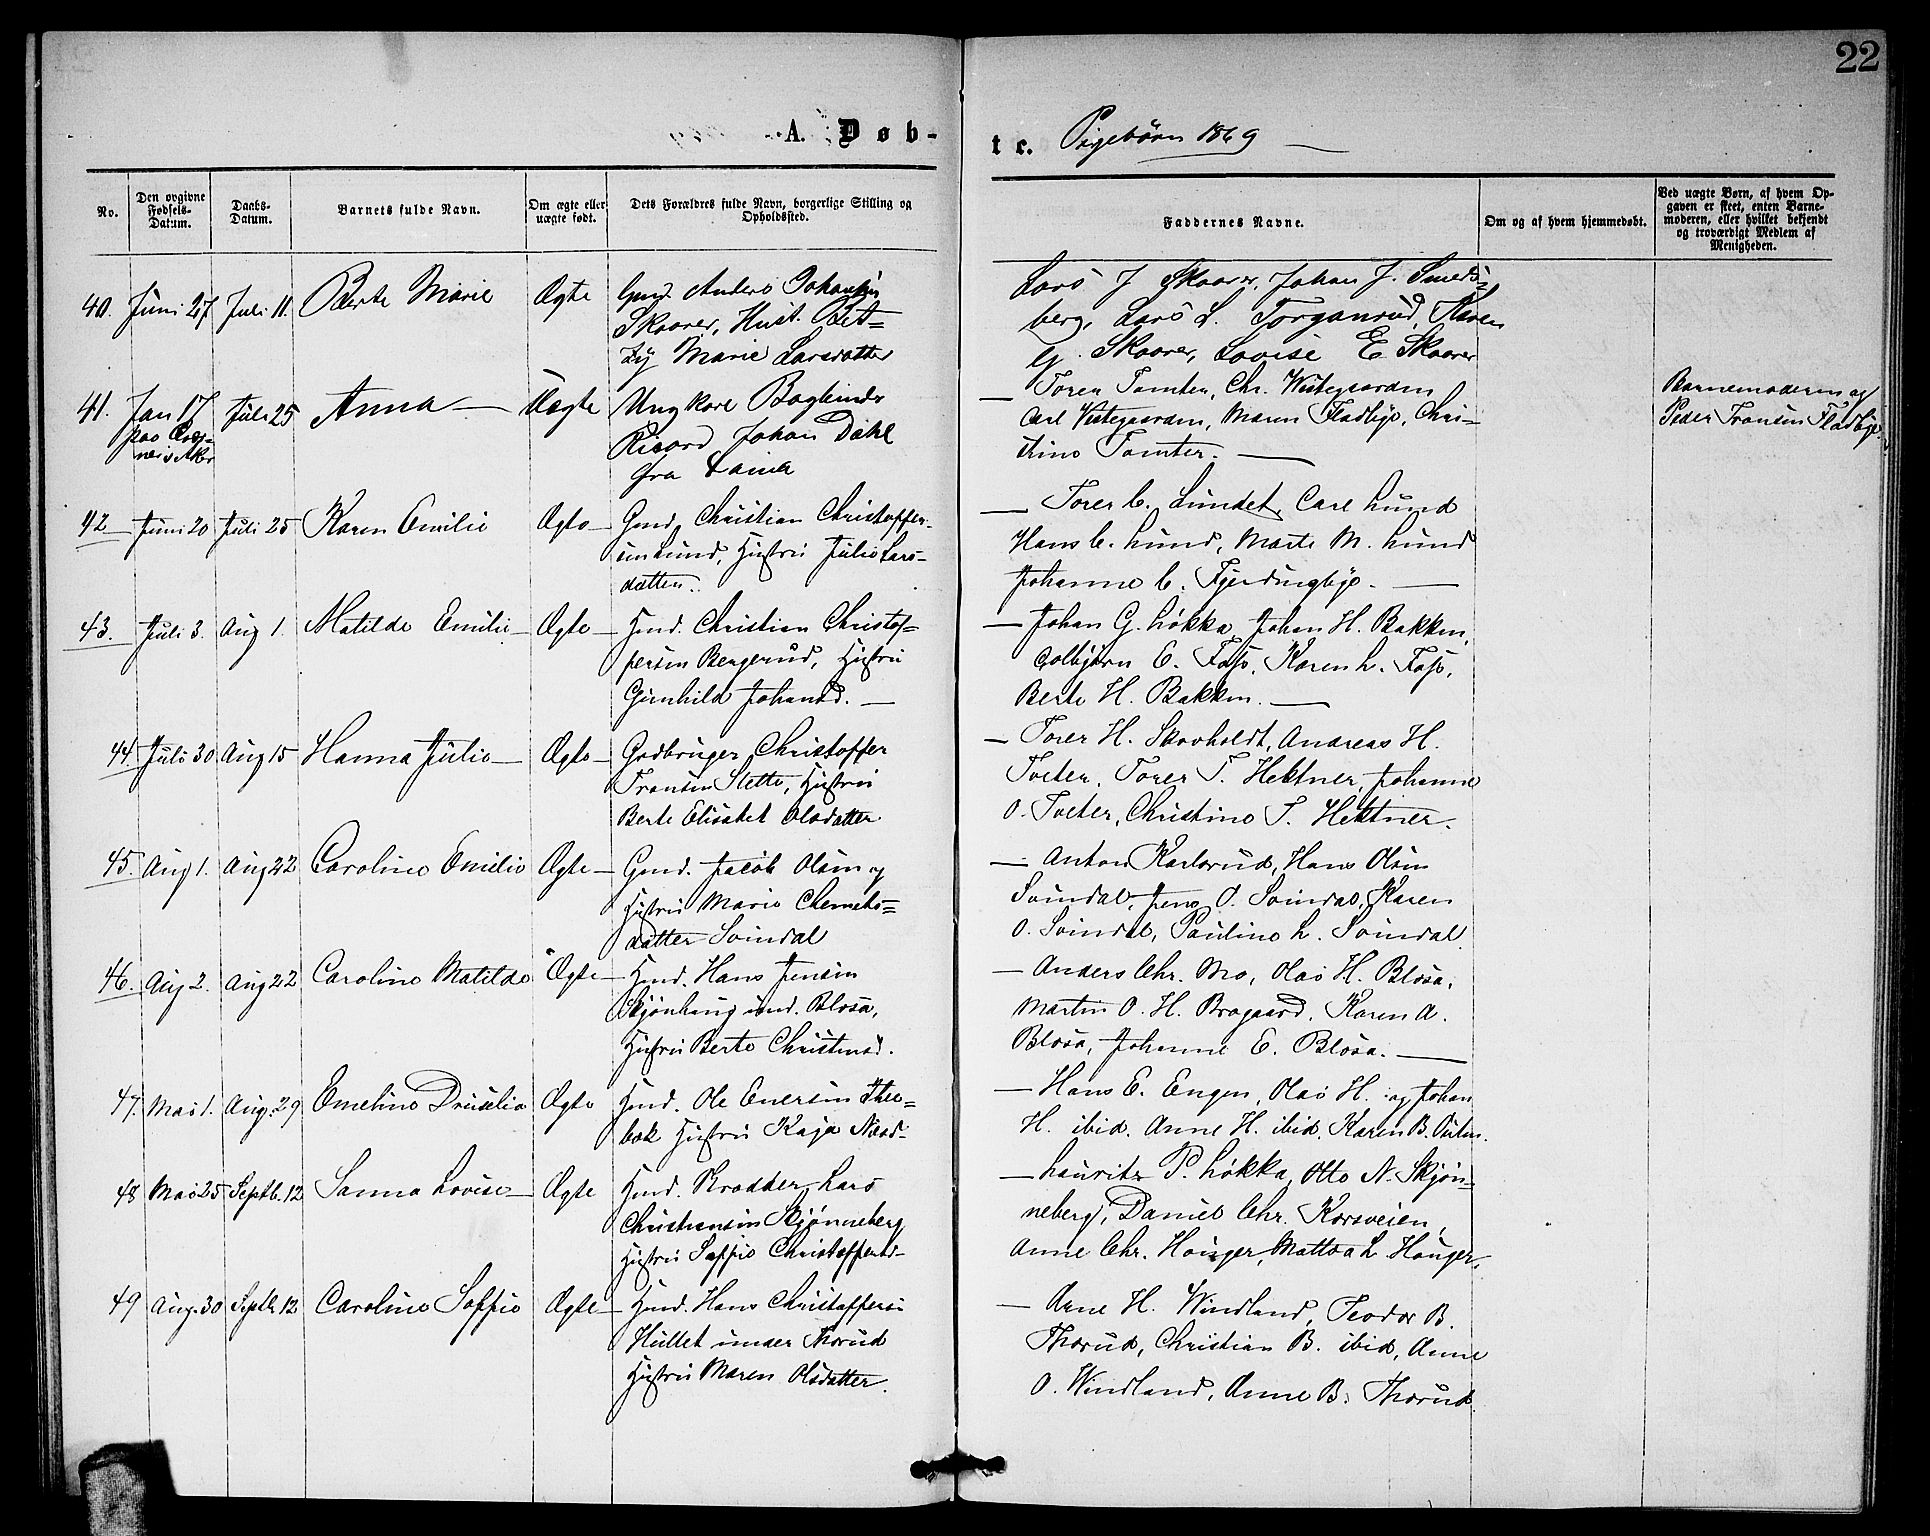 22
A. Døb-
te. Pigebørn 1869
No.
Den opgivne Fødsels-Datum.
Daabs-Datum.
Barnets fulde Navn.
Om ægte eller uægte født.
Dets Forældres fulde Navn, borgerlige Stilling og Opholdssted.
Faddernes Navne.
Om og af hvem hjemmedøbt.
Ved uægte Børn, af hvem Opgaven er skeet, enten Barnemoderen, eller hvilket bekjendt og troværdigt Medlem af Menigheden.
40. Juni 27 Juli 11. Berte Marie Ægte Gmd. Anders Johansen
Skaarer, Hust. Bet=
zy Marie Larsdatter
Lars J Skaarer, Johan J. Smeds=
berg, Lars L. Torganrud, Karen
G. Skaarer, Lovise E Skaarer
41. Jan 17 Juli 25 Anna — Uægte Ungkarl Bogbinder
Ricard Johan Dahl
fra
— Torer Tomter, Chr. Vestegaarden
Carl Vestegaarden, Maren Fladbye, Chri=
stine Tomter. —
Barnemoderen og
Peder Fransen Fladbye
42 — Juni 20 Juli 25 Karen Emilie Ægte — Gmd. Christian Christoffer-
sen Lund, Hustru Julie Lars-
datter.
— Torer C. Lundet, Carl Lund
Hans C. Lund, Marte M. Lund
Johanne C. Fjerdingbye. —
43. Juli 3. Aug 1. Matilde Emilie — Ægte — Hmd. Christian Christof=
fersen Bergerud, Hustru
Gunhild Johansd. —
— Johan G. Løkka, Johan H. Bakken,
Golbjørn E. Fos, Karen L. Fos,
Berte H. Bakken. —
44. Juli 30 Aug 15 Hanna Julie — Ægte — Grdbruger Christoffer
Fransen Slette, Hustru
Berte Elisabet Olsdatter
— Torer H. Skovholdt, Andreas H.
Tveter, Torer T. Hektner, Johanne
O. Tveter, Christine T. Hektner.
45. Aug 1. Aug 22 Caroline Emilie Ægte — Gmd. Jacob Olsen og
Hustru Marie Clemets=
datter Svindal
— Anton Karlsrud, Hans Olsen
Svindal, Jens O. Svindal, Karen
O. Svindal, Pauline L. Svindal
46. Aug 2. Aug 22 Caroline Matilde Ægte — Hmd. Hans Jensen
Skjønhaug und. Blosa,
Hustru Berte Christensd.
— Anders Chr. Mo, Olas H. Blosa,
Martin O. H. Bragaard, Karen A.
Blosa, Johanne E. Blosa. —
47. Mai 1. Aug. 29 Emeline Drusilia Ægte Hmd. Ole Enersen Thee=
bak Hustru Kaja
— Hans E. Engen, Olas H. og Johan
H. ibid. Anne H. ibid. Karen B.
48 Mai 25 Septb. 12 Sanna Lovise — Ægte Hmd. Krodder Lars
Christiansen Skjønneberg
Hustru Soffie Christoffersd-
— Lauritz P. Løkka, Otto N. Skjøn=
neberg, Daniel Chr. Korsveien,
Anne Chr. Hauger, Mattea L. Hauger.
49 Aug. 30 Septb. 12 Caroline Soffie Ægte — Hmd. Hans Christoffersen
Hullet under Thorud
Hustru Maren Olsdatter.
— Arne H. Windland, Teodor B.
Thorud, Christian B. ibid, Anne
O. Windland, Anne B. Thorud.